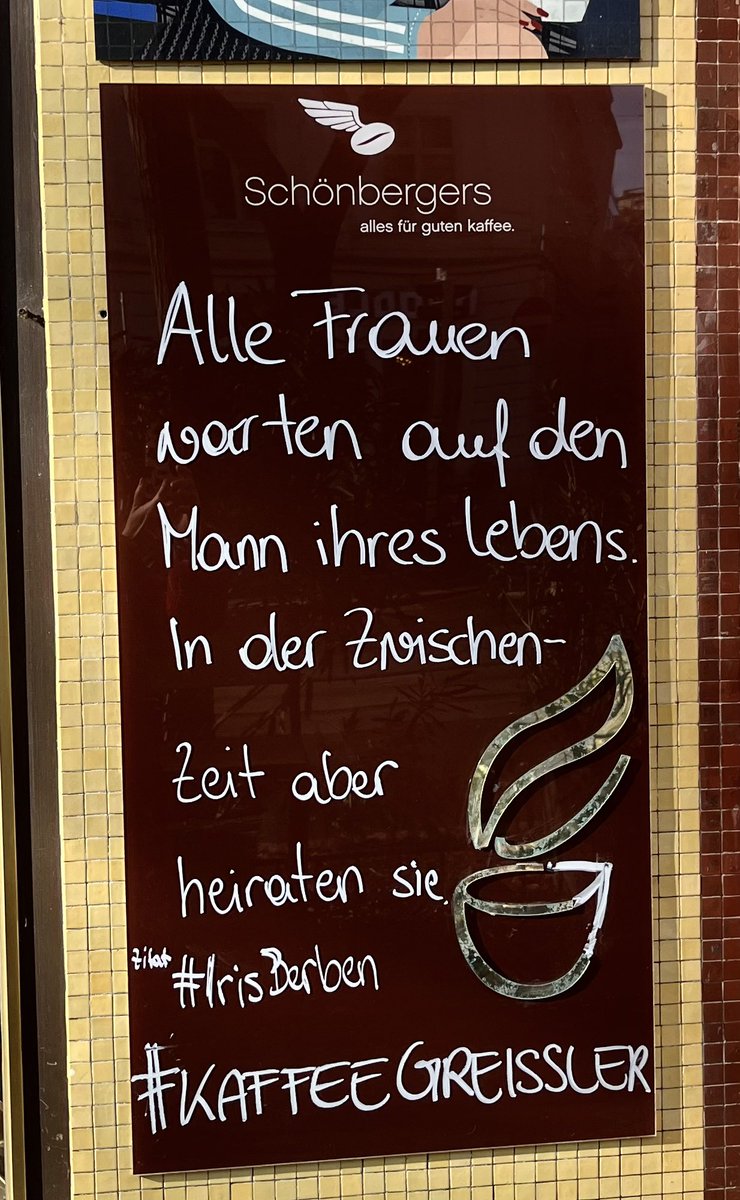 Schönbergers
alles für guten kaffee.
Alle Frauen
warten auf den
Mann ihres Lebens.
In der Zwischen-
Zeit aber
heiraten sie.
Zitat #IrisBerben
#KAFFEEGREISSLER